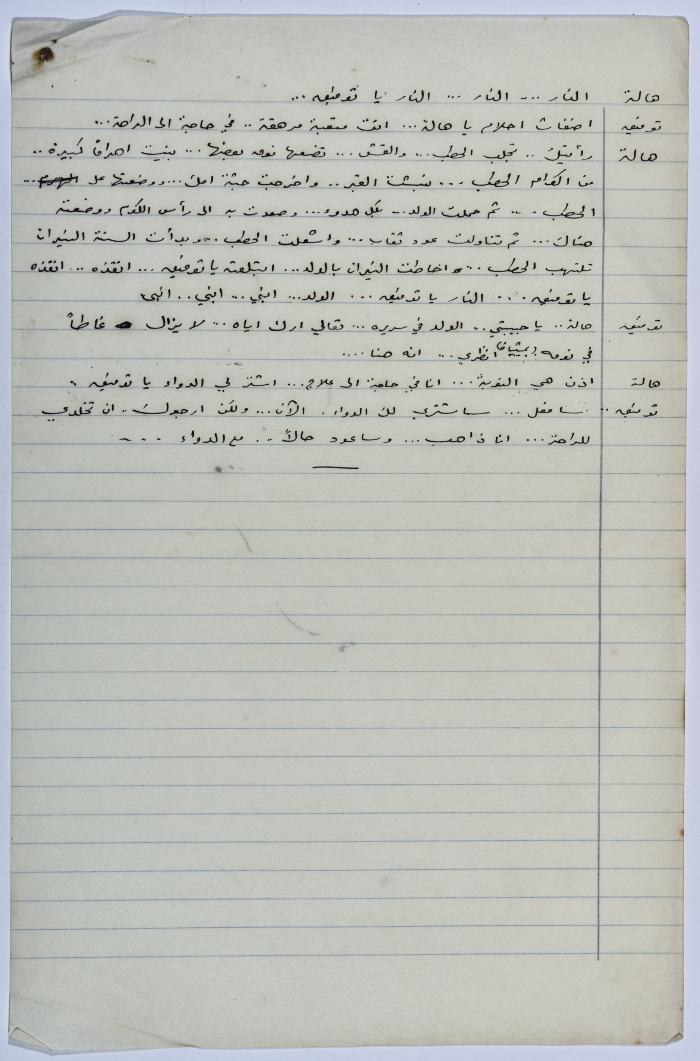 هالة النار ... النار ... النار يا توفيق ...
توفيق اضغاث احلام يا هالة ... انت متعبة مرهقة .. في حاجة الى الراحة ...
هالة رأيتك .. تجلب الحطب ... والقش ... تضعها فوق بعضها ... بنيت اهراماً كبيرة ..
من اكوام الحطب ... نبشت القبر .. واخرجت جثة امك ... ووضعتها على
الحطب ... ثم حملت الولد .. بكل هدوء ... وصعدت به الى رأس الكوم ووضعته
هناك ... ثم تناولت عود ثقاب ... واشعلت الحطب .. وبدأت السنة النيران
تلتهب الحطب ... واحاطت النيران بالولد ... ابتلعته يا توفيق ... انقذه .. انقذه
يا توفيق ... النار يا توفيق ... الولد ... ابني ... ابني .. ابني
توفيق هالة .. يا حبيبتي .. الولد في سريره ... تعالي ارك اياه ... لا يزال غاطاً
في نومه انظري ... انه هنا ....
هالة اذن هي النوبة ... انا في حاجة الى علاج ... اشتر لي الدواء يا توفيق ..
توفيق .. سافعل ... ساشتري لك الدواء . الآن ... ولكن ارجوك .. ان تخلدي
للراحة ... انا ذاهب ... وساعود حالاً .. مع الدواء ...